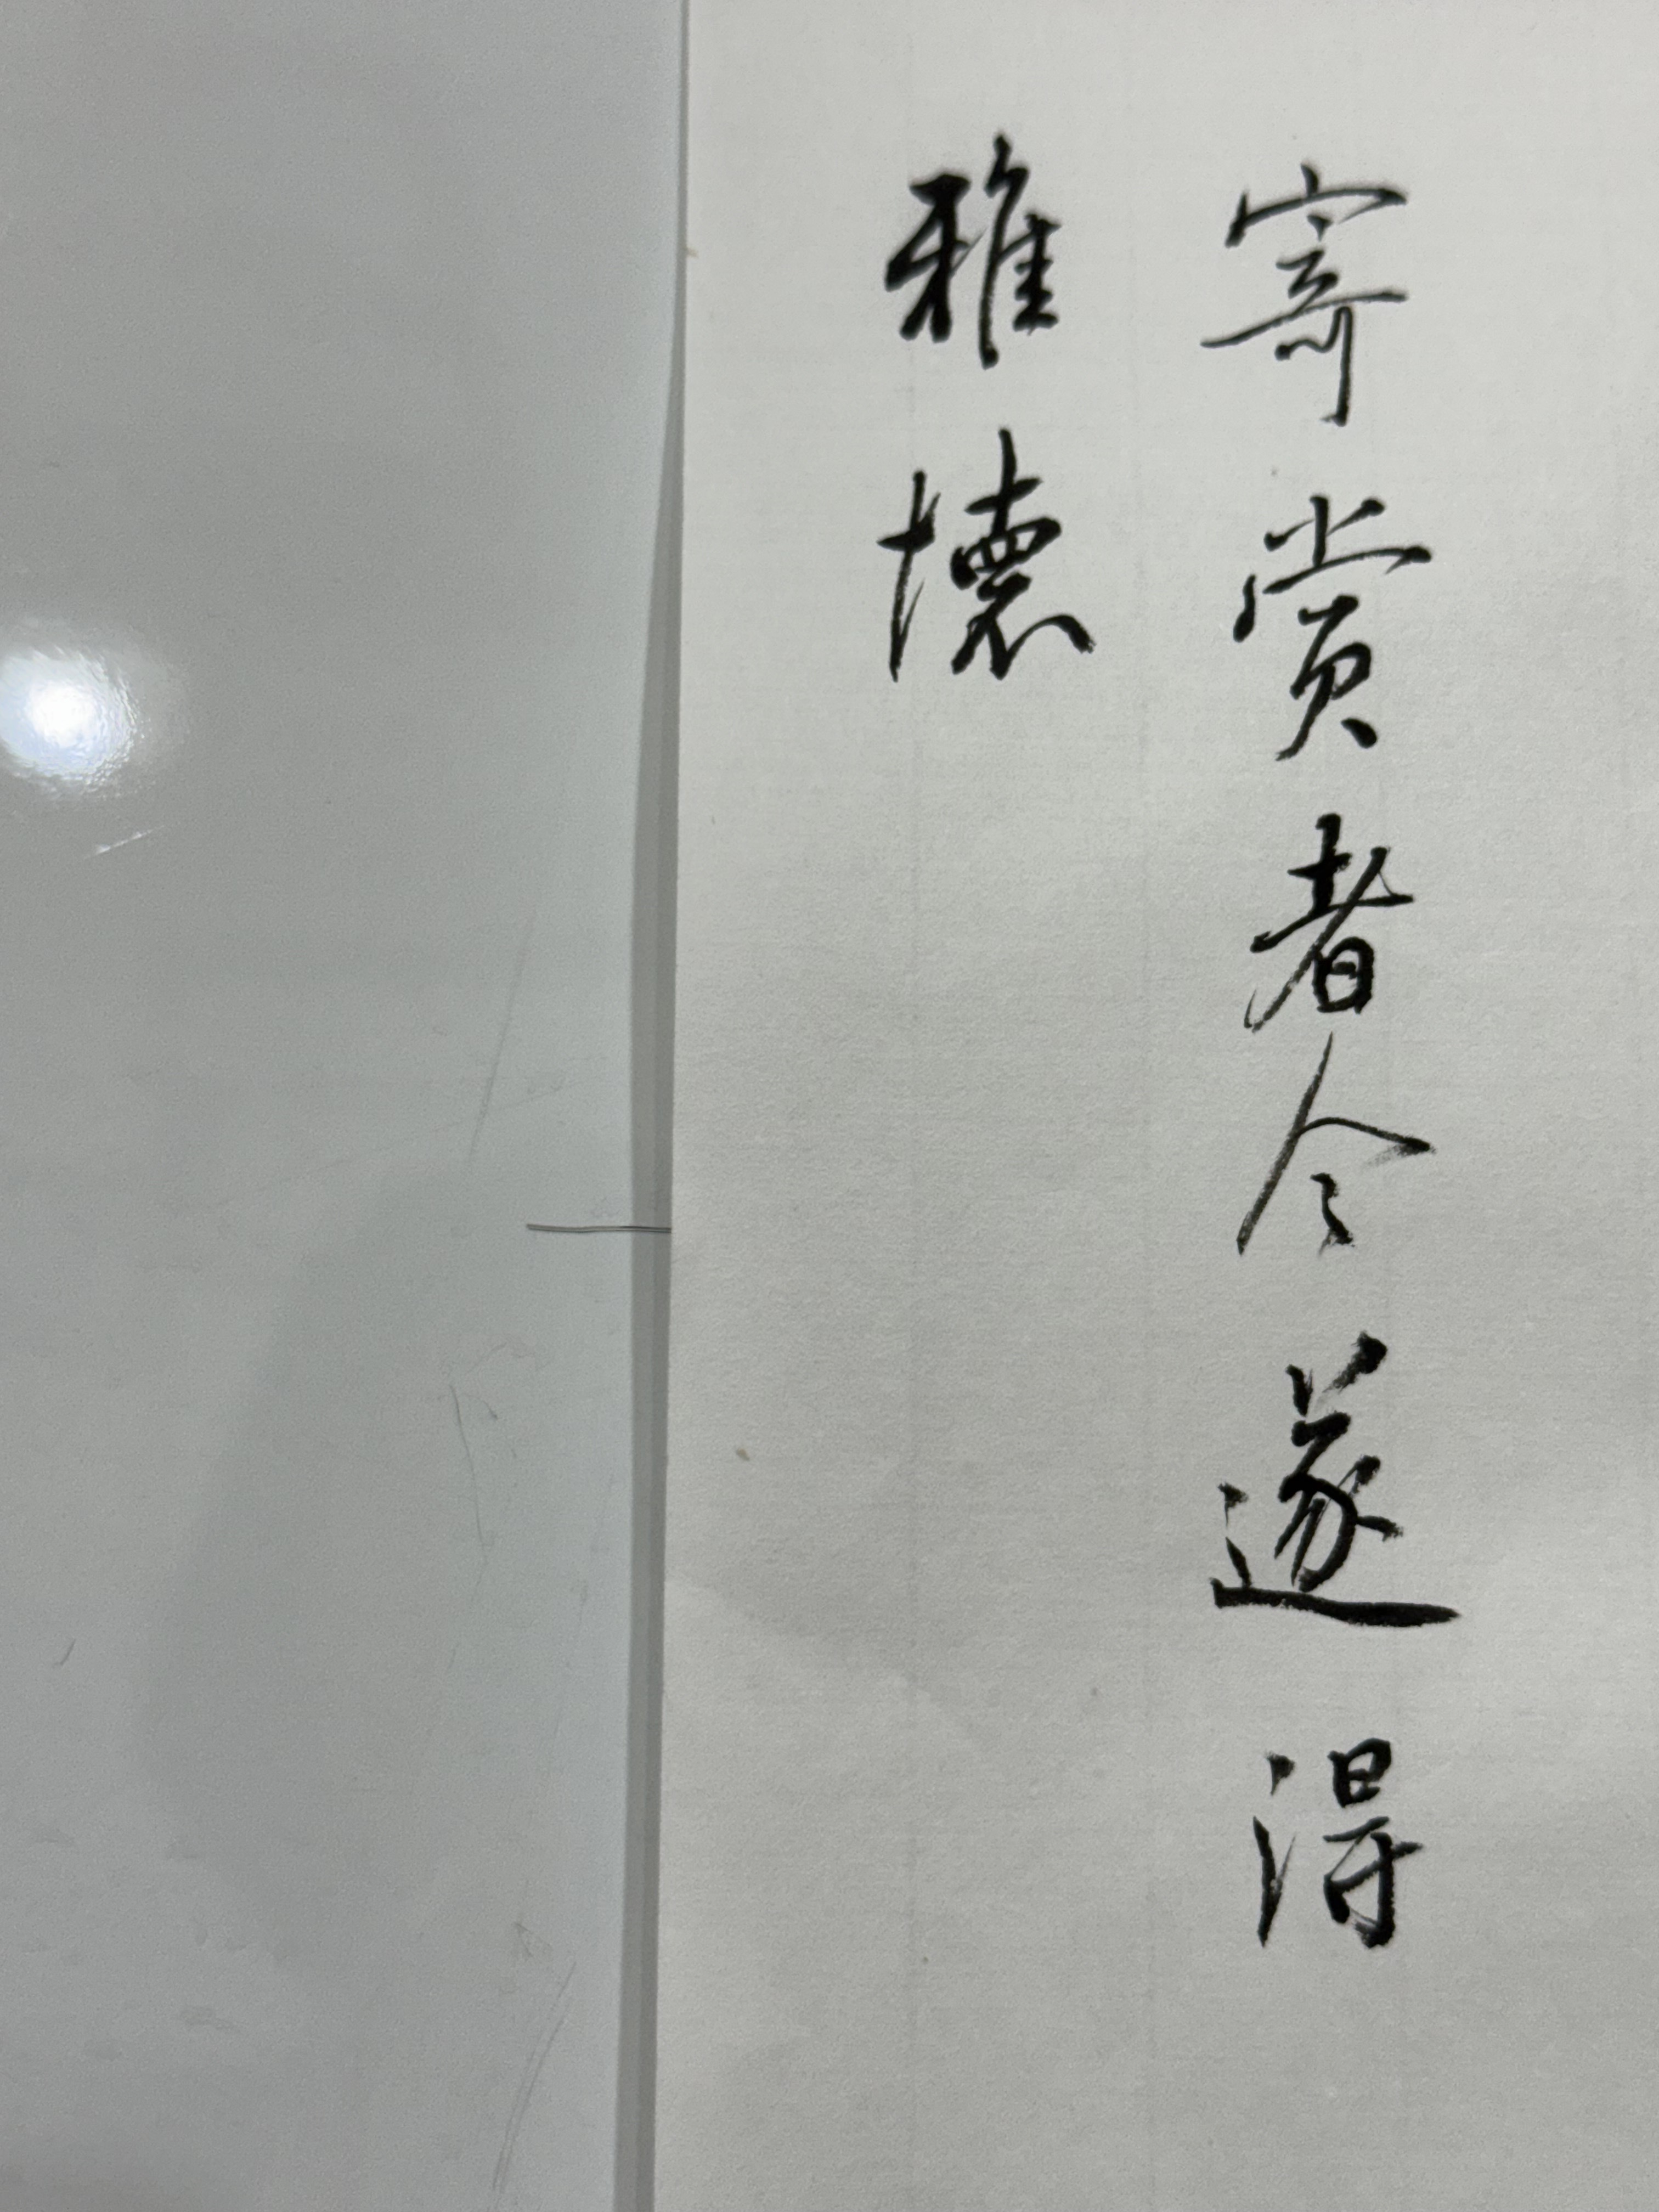 寄赏者今遂得
雅懷